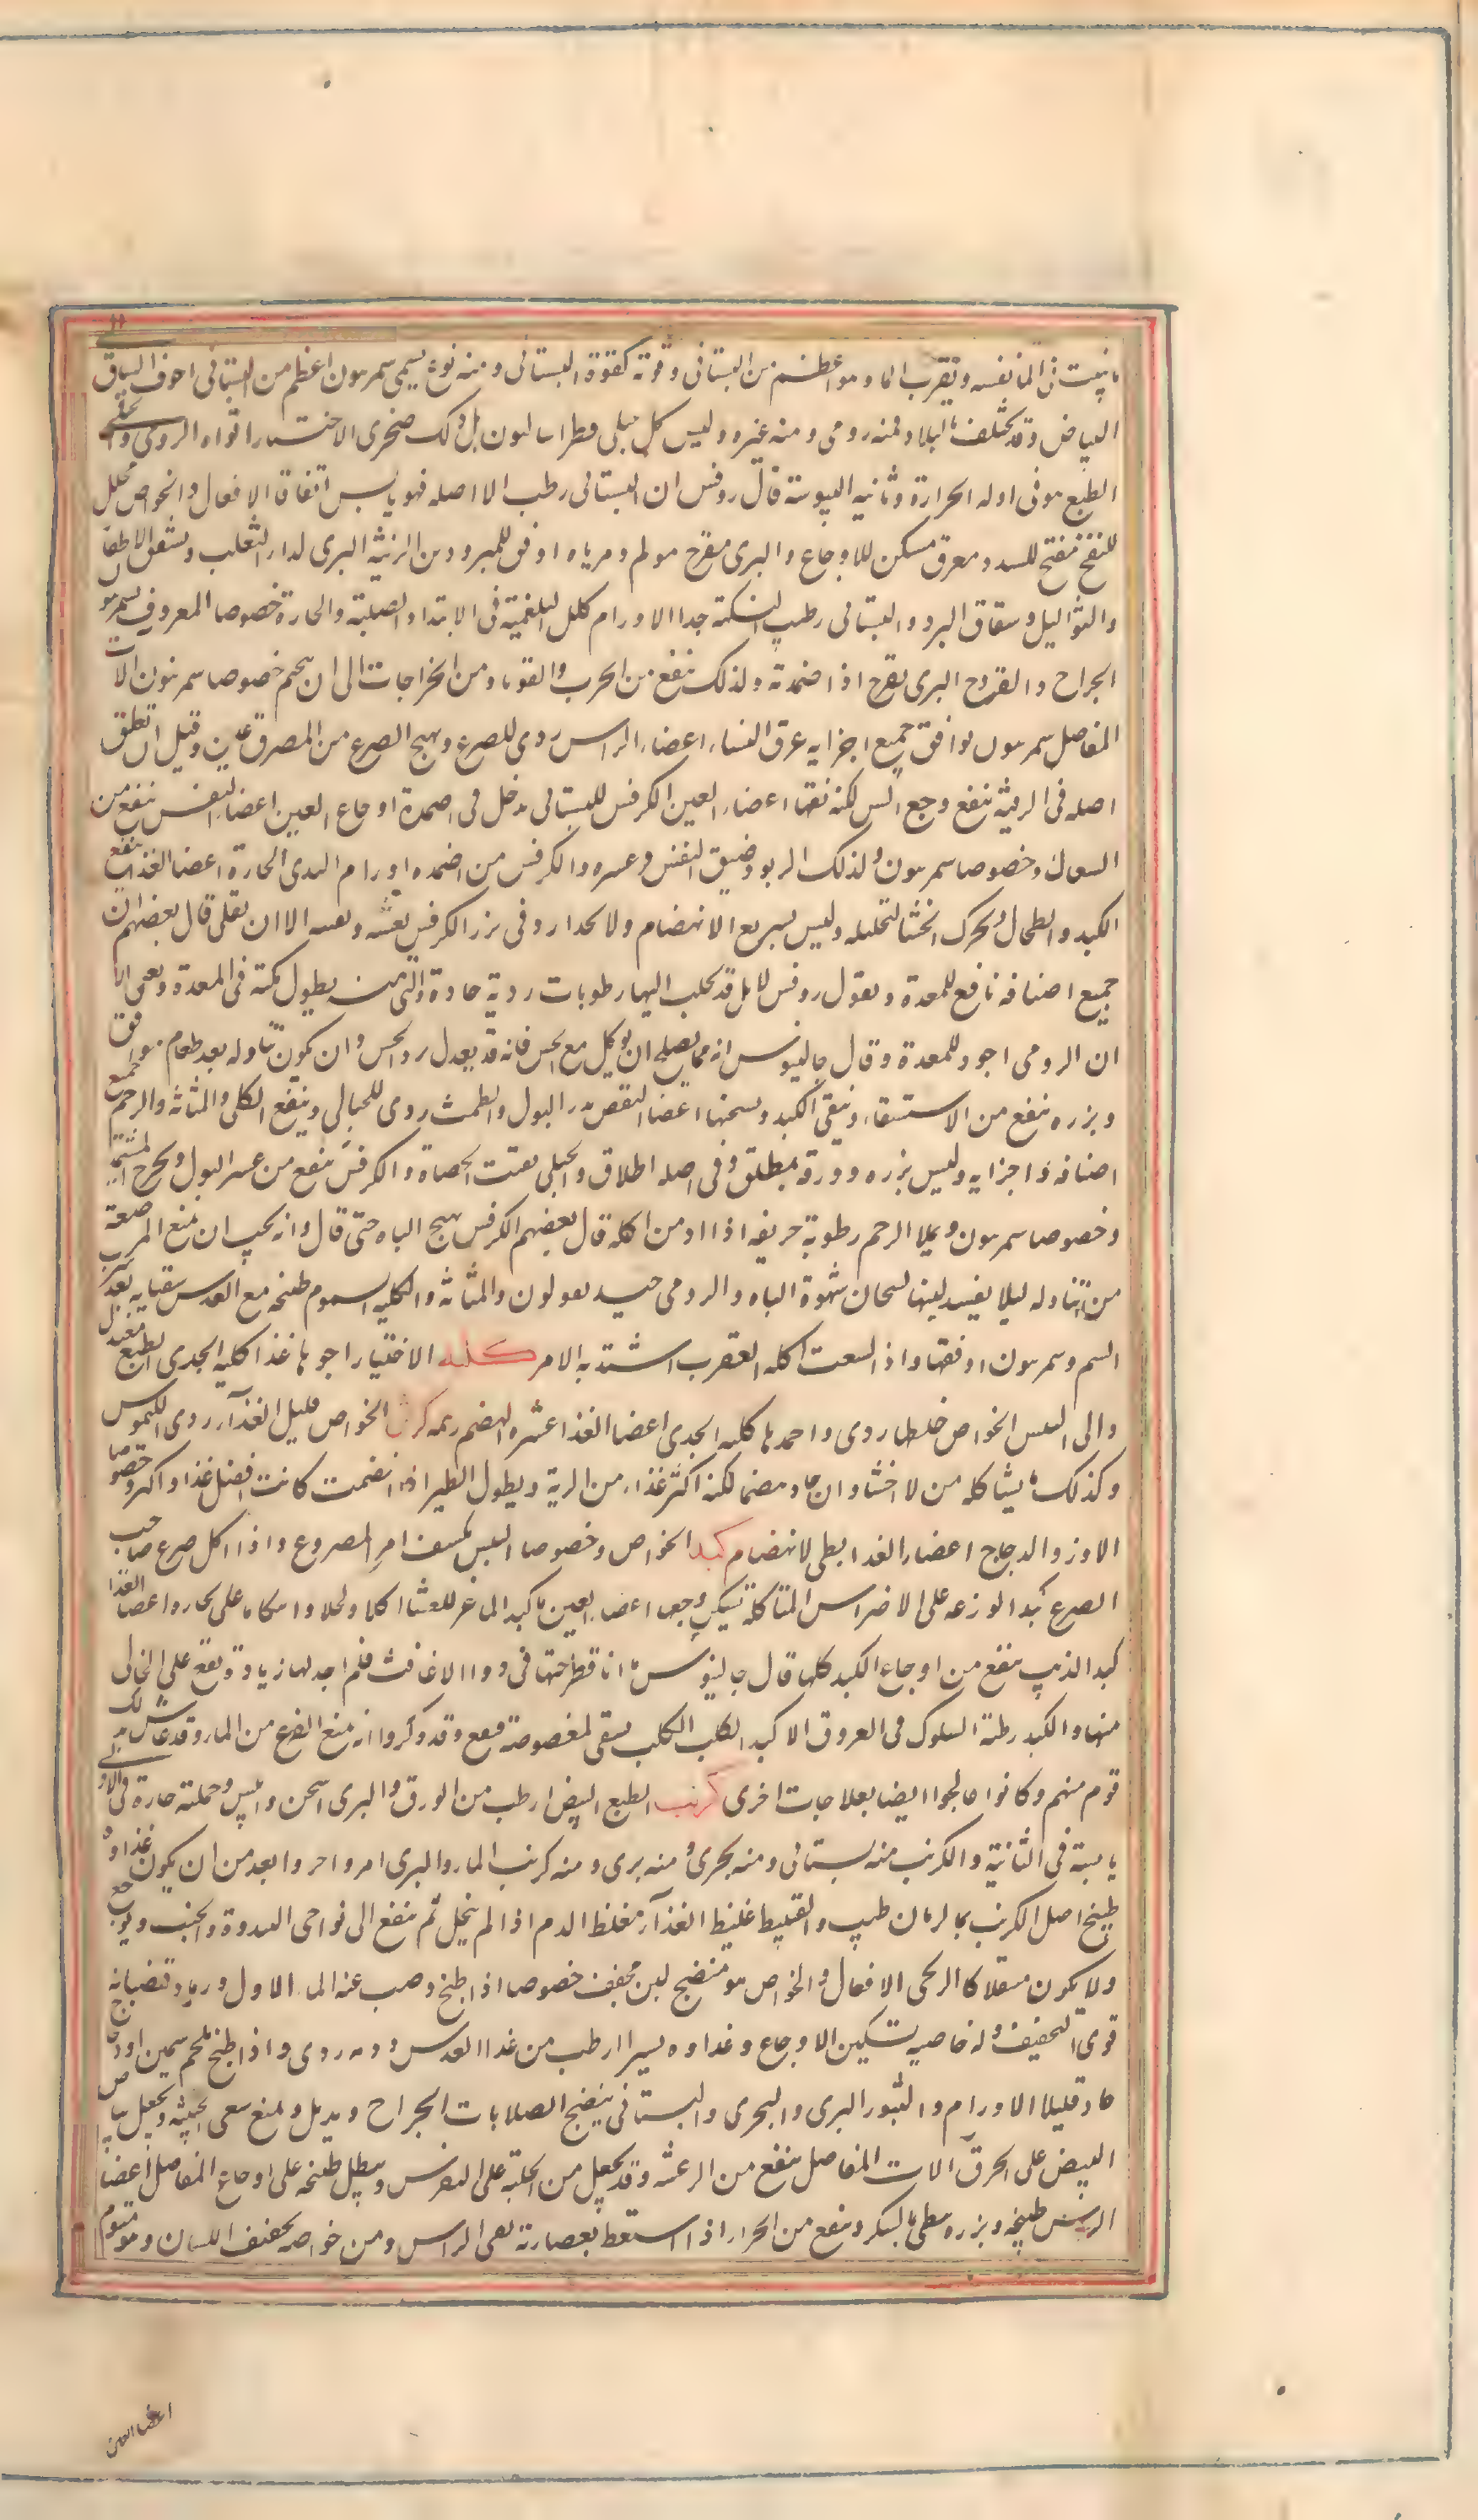 ما ينبت فى الماء نفسه وبقرب الماء وهو اعظم من البستانى وقوته كقوة البستانى ومنه نوع يسمى سمرنيون اعظم من البستانى اجوف الساق
البياض وقد يختلف بالبلاد فمنه رومى ومنه غيره وليس كل جبلى فطراساليون بل ذلك صخرى الاختيار اقواه الرومى والجبلى
الطبع هو فى اوله الحرارة وثانيه اليبوسة قال روفس ان البستانى رطب الا اصله فهو يابس اتفاقا الافعال والخواص محلل
للنفخ مفتح للسدد معرق مسكن للاوجاع والبرى مقرح مولم ومرباه اوفق للمبرودين الزينة البرى لداء الثعلب وتشقق الاظفار
والثواليل وشقاق البرد والبستانى يطيب النكهة جدا الاورام يحلل البلغمية فى الابتداء والصلبة والحارة خصوصا المعروف بسمرنيون
الجراح والقروح البرى يقرح اذا ضمد به ولذلك ينفع من الجرب والقوباء ومن الخراجات الى ان يختم خصوصا سمرنيون الات
المفاصل سمرنيون يوافق جميع اجزايه عرق النسا اعضاء الراس ردى للصرع ويهيج الصرع من المصروعين وقيل ان تعلق
اصله فى الرقبة ينفع وجع السن لكنه يفتها اعضاء العين الكرفس البستانى يدخل فى اضمدة اوجاع العين اعضاء النفس ينفع من
السعال وخصوصا سمرنيون ولذلك الربو وضيق النفس وعسره والكرفس من اضمدة اورام الثدى الحارة اعضا الغذا ينفع
الكبد والطحال ويحرك الجشا لتحليله وليس بسريع الانهضام ولا انحدار وفى بزر الكرفس تغثية وتقيئة الا ان يقلى قال بعضهم ان
جميع اصنافه نافع للمعدة ويقول روفس لا بل قد يجلب اليها رطوبات ردية حادة والتى منه يطول مكثه فى المعدة ويغثى الا
ان الرومى اجود للمعدة وقال جالينوس انه مما يصلح ان يوكل مع الخس فانه قد يعدل برد الخس وان يكون تناوله بعد طعام موافق
وبزره ينفع من الاستسقاء وينقى الكبد ويسخنها اعضا النفض يدر البول والطمث ردى للحبالى وينفع الكلى والمثانة والرحم جميع
اصنافه واجزايه وليس بزره وورقه بمطلق وفى اصله اطلاق والجبلى يفتت الحصاة والكرفس ينفع من عسر البول ويخرج المشيمة
وخصوصا سمرنيون ويملا الرحم رطوبة حريفة اذا ادمن اكله قال بعضهم الكرفس يهيج الباه حتى قال وانه يجب ان تمنع المرضعة
من تناوله ليلا يفسد لبنها لهيجان شهوة الباه والرومى جيد لقولون والمثانة والكلية السموم طبيخه مع العدس يتقيا به بعد شرب
السم وسمرنيون اوفقها واذا لسعت اكله العقرب اشتد به الامر كلية الاختيار اجودها غذا كلية الجدى الطبع معتدل
والى اليبس الخواص خلطها ردى واحمدها كلية الجدى اعضا الغذا عسرة الهضم زهمة كرش الخواص قليل الغذآء ردى الكيموس
وكذلك ما يشاكله من الاحشاء وان جاد هضما لكنه اكثر غذاء من الرية وبطون الطير اذا انهضمت كانت افضل غذا واكثر وخصوصا
الاوز والدجاج اعضاء الغذا بطى الانهضام كبد الخواص وخصوصا التيس يكشف امر المصروع واذا اكل صرع صاحب
الصرع كبد الوزغة على الاضراس المتاكلة تسكن وجعها اعضاء العين ماء كبد الماعز للعشا اكلا وكحلا وانكبابا على بخاره اعضا الغذا
كبد الذيب ينفع من اوجاع الكبد كلها قال جالينوس انا قد طرحتها فى دوا الغافت فلم اجد لها زيادة نفع على الخالى
منها والكبد بطية السلوك فى العروق الا كبد الكلب الكلب يسقى لمعضوضه فينفع وقد ذكروا انه يمنع الفزع من الماء وقد عاش بذلك
قوم منهم وكانوا عالجوا ايضا بعلاجات اخرى كرنب الطبع البيض ارطب من الورق والبرى اسخن وايبس وجملته حارة فى الاولى
يابسة فى الثانية والكرنب منه بستانى ومنه بحرى ومنه برى ومنه كرنب الماء والبرى امر واحر وابعد من ان يكون غذاء و
طبيخ اصل الكرنب بماء الرمان طيب والقنبيط غليظ الغذآء مغلظ الدم اذا لم ينحل ثم ينفع الى نواحى الثندوة والجنب ويوجع
ولا يكون متنقلا كالريحى الافعال والخواص هو منضج ملين مجفف خصوصا اذا طبخ وصب عنه الماء الاول ورماد قضبانه
قوى التجفيف وله خاصية تسكين الاوجاع وغذاوه يسير ارطب من غذاء العدس ودمه ردى واذا طبخ بلحم سمين او دجاج
جاد قليلا الاورام والبثور البرى والبحرى والبستانى ينضج الصلابات الجراح ويدمل ويمنع سعى الخبيثة ويجعل ببياض
البيض على الحرق الات المفاصل ينفع من الرعشة وقد يجعل من الحلبة على النقرس وينطل طبيخه على اوجاع المفاصل اعضا
الراس طبيخه وبزره يبطى بالسكر وينفع من الخمار اذا استعط بعصارته نقى الراس ومن خواصه تجفيف اللسان وهو منوم
اعضا العين